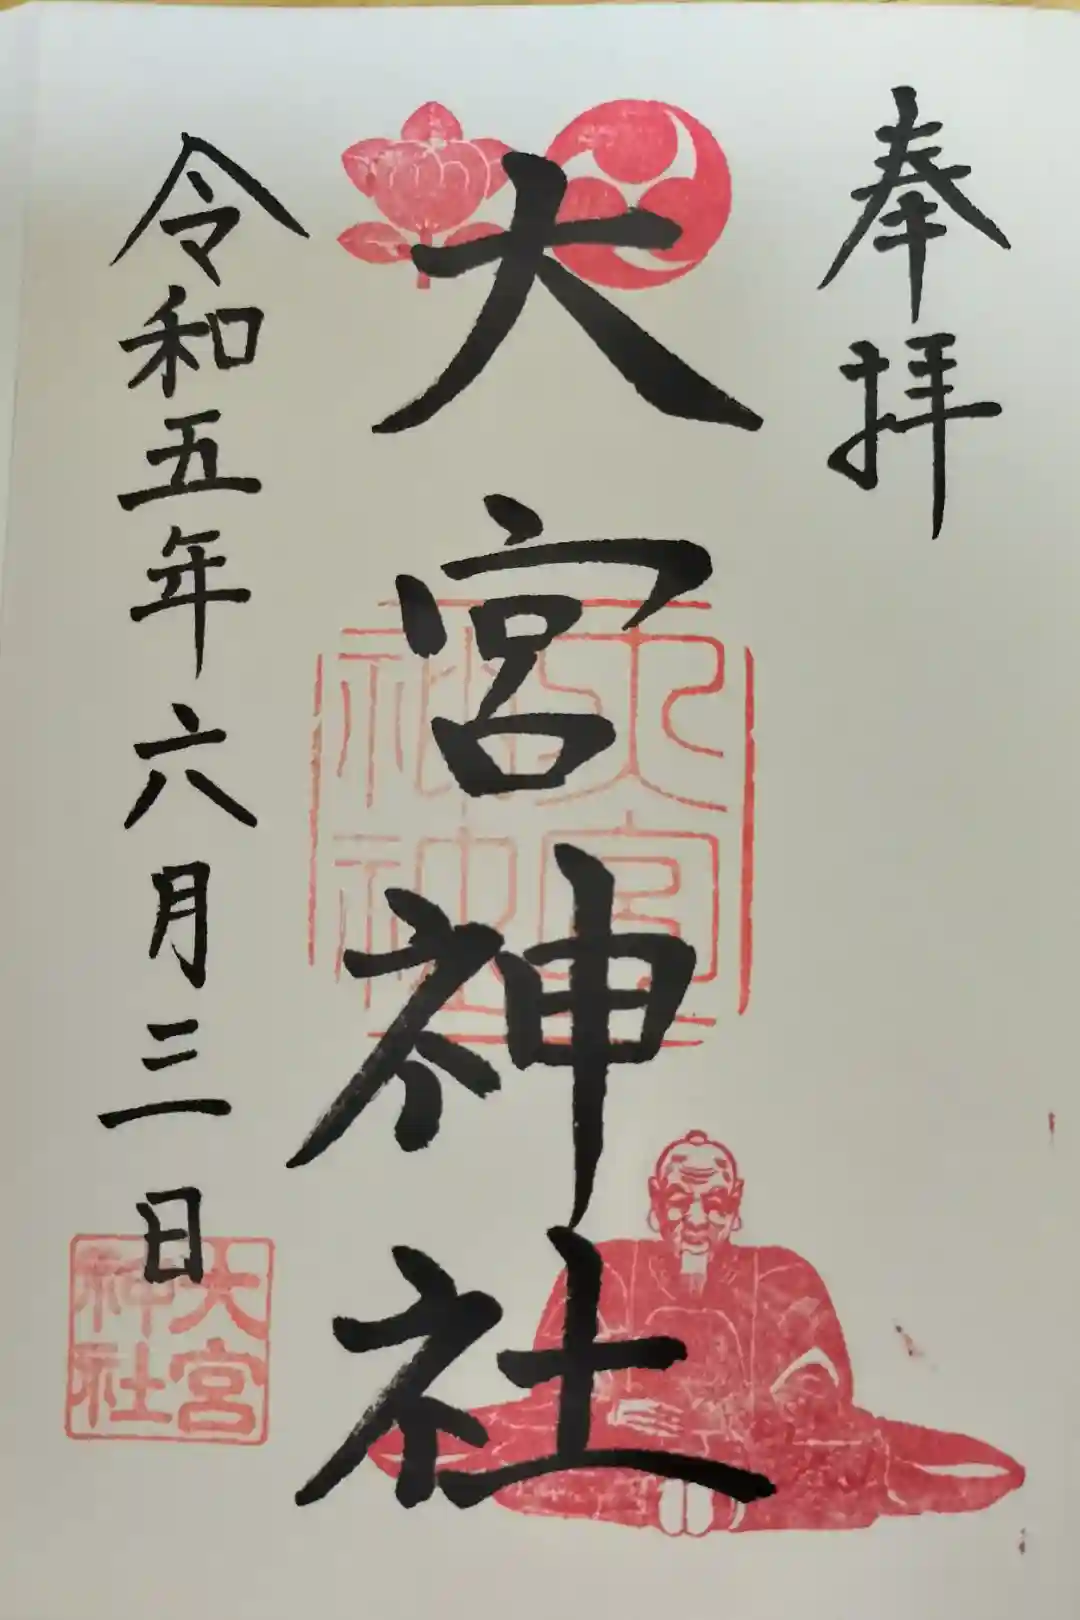 奉拝
大宮神社
大宮神社
令和五年六月三日
大宮神社